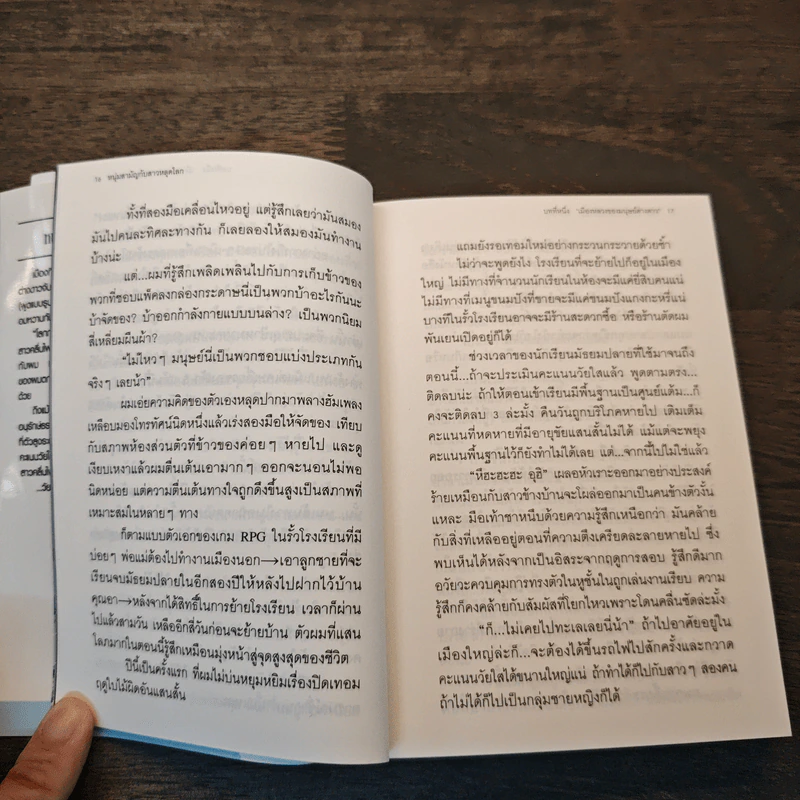 16 หนุ่มสามัญกับสาวหลุดโลก
ทั้งที่สองมือเคลื่อนไหวอยู่ แต่รู้สึกเลยว่ามันสมอง
มันไปคนละทิศละทางกัน ก็เลยลองให้สมองมันทำงาน
บ้างน่ะ
แต่...ผมที่รู้สึกเพลิดเพลินไปกับการเก็บข้าวของ
พวกที่ชอบแพ็คลงกล่องกระดาษนี่เป็นพวกบ้าอะไรกันนะ
บ้าจัดของ? บ้าออกกำลังกายแบบบนล่าง? เป็นพวกนิยม
สี่เหลี่ยมผืนผ้า?
“ไม่ไหวๆ มนุษย์นี่เป็นพวกชอบแบ่งประเภทกัน
จริงๆ เลยน้า”
ผมเอ่ยความคิดของตัวเองหลุดปากมาพลางฮัมเพลง
เหลือบมองโทรทัศน์นิดหนึ่งแล้วเร่งสองมือให้จัดของ เทียบ
กับสภาพห้องส่วนตัวที่ข้าวของค่อยๆ หายไป และดู
เงียบเหงาแล้วผมตื่นเต้นเอามากๆ ออกจะนอนไม่พอ
นิดหน่อย แต่ความตื่นเต้นทางใจถูกดึงขึ้นสูงเป็นสภาพที่
เหมาะสมในหลายๆ ทาง
ก็ตามแบบตัวเอกของเกม RPG ในรั้วโรงเรียนที่มี
บ่อยๆ พ่อแม่ต้องไปทำงานเมืองนอก→เอาลูกชายที่จะ
เรียนจบมัธยมปลายในอีกสองปีให้หลังไปฝากไว้บ้าน
คุณอา→หลังจากได้สิทธิ์ในการย้ายโรงเรียน เวลาก็ผ่าน
ไปแล้วสามวัน เหลืออีกสี่วันก่อนจะย้ายบ้าน ตัวผมที่แสน
โลภมากในตอนนี้รู้สึกเหมือนมุ่งหน้าสู่จุดสูงสุดของชีวิต
ปีนี้เป็นครั้งแรก ที่ผมไม่บ่นหยุมหยิมเรื่องปิดเทอม
ฤดูใบไม้ผลิอันแสนสั้น
บทที่หนึ่ง 17
แถมยังรอเทอมใหม่อย่างกระวนกระวายด้วยซ้ำ
ไม่ว่าจะพูดยังไง โรงเรียนที่จะย้ายไปก็อยู่ในเมือง
ใหญ่ ไม่มีทางที่จำนวนนักเรียนในห้องจะมีแค่ยี่สิบคนแน่
ไม่มีทางที่เมนูขนมปังที่ขายจะมีแค่ขนมปังแกงกะหรี่แน่
บางทีในรั้วโรงเรียนอาจจะมีร้านสะดวกซื้อ หรือร้านตัดผม
พันเยนเปิดอยู่ก็ได้
ช่วงเวลาของนักเรียนมัธยมปลายที่ใช้มาจนถึง
ตอนนี้...ถ้าจะประเมินคะแนนวัยใสแล้ว พูดตามตรง...
ติดลบน่ะ ถ้าให้ตอนเข้าเรียนมีพื้นฐานเป็นศูนย์แต้ม...ก็
คงจะติดลบ 3 ล่ะมั้ง คืนวันถูกบริโภคหายไป เติมเต็ม
คะแนนที่หดหายที่มีอายุขัยแสนสั้นไม่ได้ แม้แต่จะพยุง
คะแนนพื้นฐานไว้ก็ยังทำไม่ได้เลย แต่...จากนี้ไปไม่ใช่แล้ว
“หึฮะฮะฮะ อุฮิ” เผลอหัวเราะออกมาอย่างประสงค์
ร้ายเหมือนกับสาวข้างบ้านจะโผล่ออกมาเป็นคนข้างตัวงั้น
แหละ มือเท้าชาหนึบด้วยความรู้สึกเหนือกว่า มันคล้าย
กับสิ่งที่เหลืออยู่ตอนที่ความตึงเครียดละลายหายไป ซึ่ง
พบเห็นได้หลังจากเป็นอิสระจากฤดูการสอบ รู้สึกดีมาก
อวัยวะควบคุมการทรงตัวในหูชั้นในถูกเล่นงานเรียบ ความ
รู้สึกก็คงคล้ายกับสัมผัสที่โยกไหวเพราะโดนคลื่นซัดล่ะมั้ง
“ก็...ไม่เคยไปทะเลเลยนี่น้า” ถ้าไปอาศัยอยู่ใน
เมืองใหญ่ล่ะก็...จะต้องได้ขึ้นรถไฟไปสักครั้งและกวาด
คะแนนวัยใสได้ขนานใหญ่แน่ ถ้าทำได้ก็ไปกับสาวๆ สองคน
ถ้าไม่ได้ก็ไปเป็นกลุ่มชายหญิงก็ได้